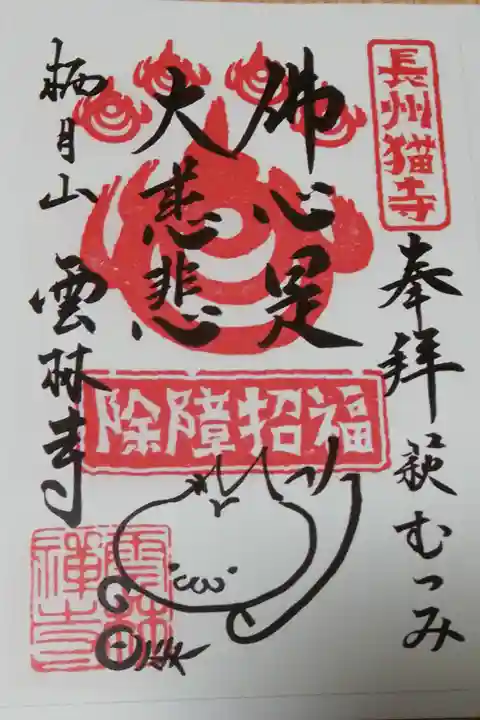 長州猫寺
奉拝 萩むつみ
佛心是
大慈悲
除障招福
栖月山 雲林寺
雲林禅寺